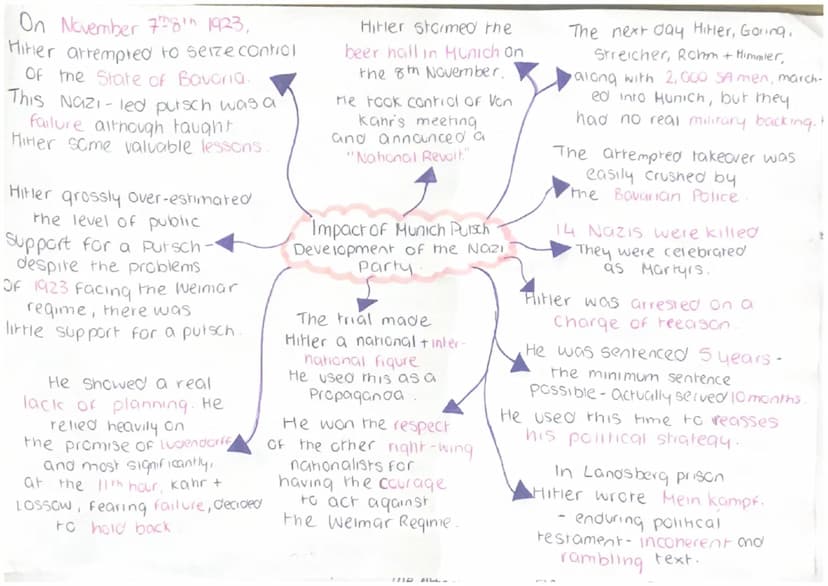 On November 7th 8th 1923,
Hitler attempted to seize control
of the State of Bavaria.
This Nazi-led putsch was a
failure although taught
Hitler some valuable lessons.
Hitler stormed the
beer hall in Munich on
the 8th November.
He took control of Von
Kahr's meeting
and announced a
"National Revolt"
The next day Hitler, Goring,
Streicher, Rohm + Himmler,
along with 2,000 SA men, march-
ed into Munich, but they
had no real military backing.
The attempted takeover was
easily crushed by
the Bavarian Police.
Hitler grossly over-estimated
the level of public
support for a Putsch -
despite the problems
of 1923 facing the Weimar
regime, there was
little support for a putsch.
Impact of Munich Putsch
Development of the Nazi
Party.
14 Nazis were killed
They were celebrated
as Martyrs.
Hitler was arrested on a
charge of treason.
The trial made
Hitler a national + inter-
national figure
He used this as a
Propaganda.
He was sentenced 5 years -
the minimum sentence
possible - actually served 10 months.
He used this time to reasses
his political strategy.
He showed a real
lack of planning. He
relied heavily on
the promise of Ludendorff
and most significantly,
at the 11th hour, Kahr +
Lossow, fearing failure, decided
to hold back.
He won the respect
of the other right-wing
nationalists for
having the courage
to act against
the Weimar Regime.
In Landsberg prison
Hitler wrote Mein Kampf.
- enduring political
testament - incoherent and
rambling text.